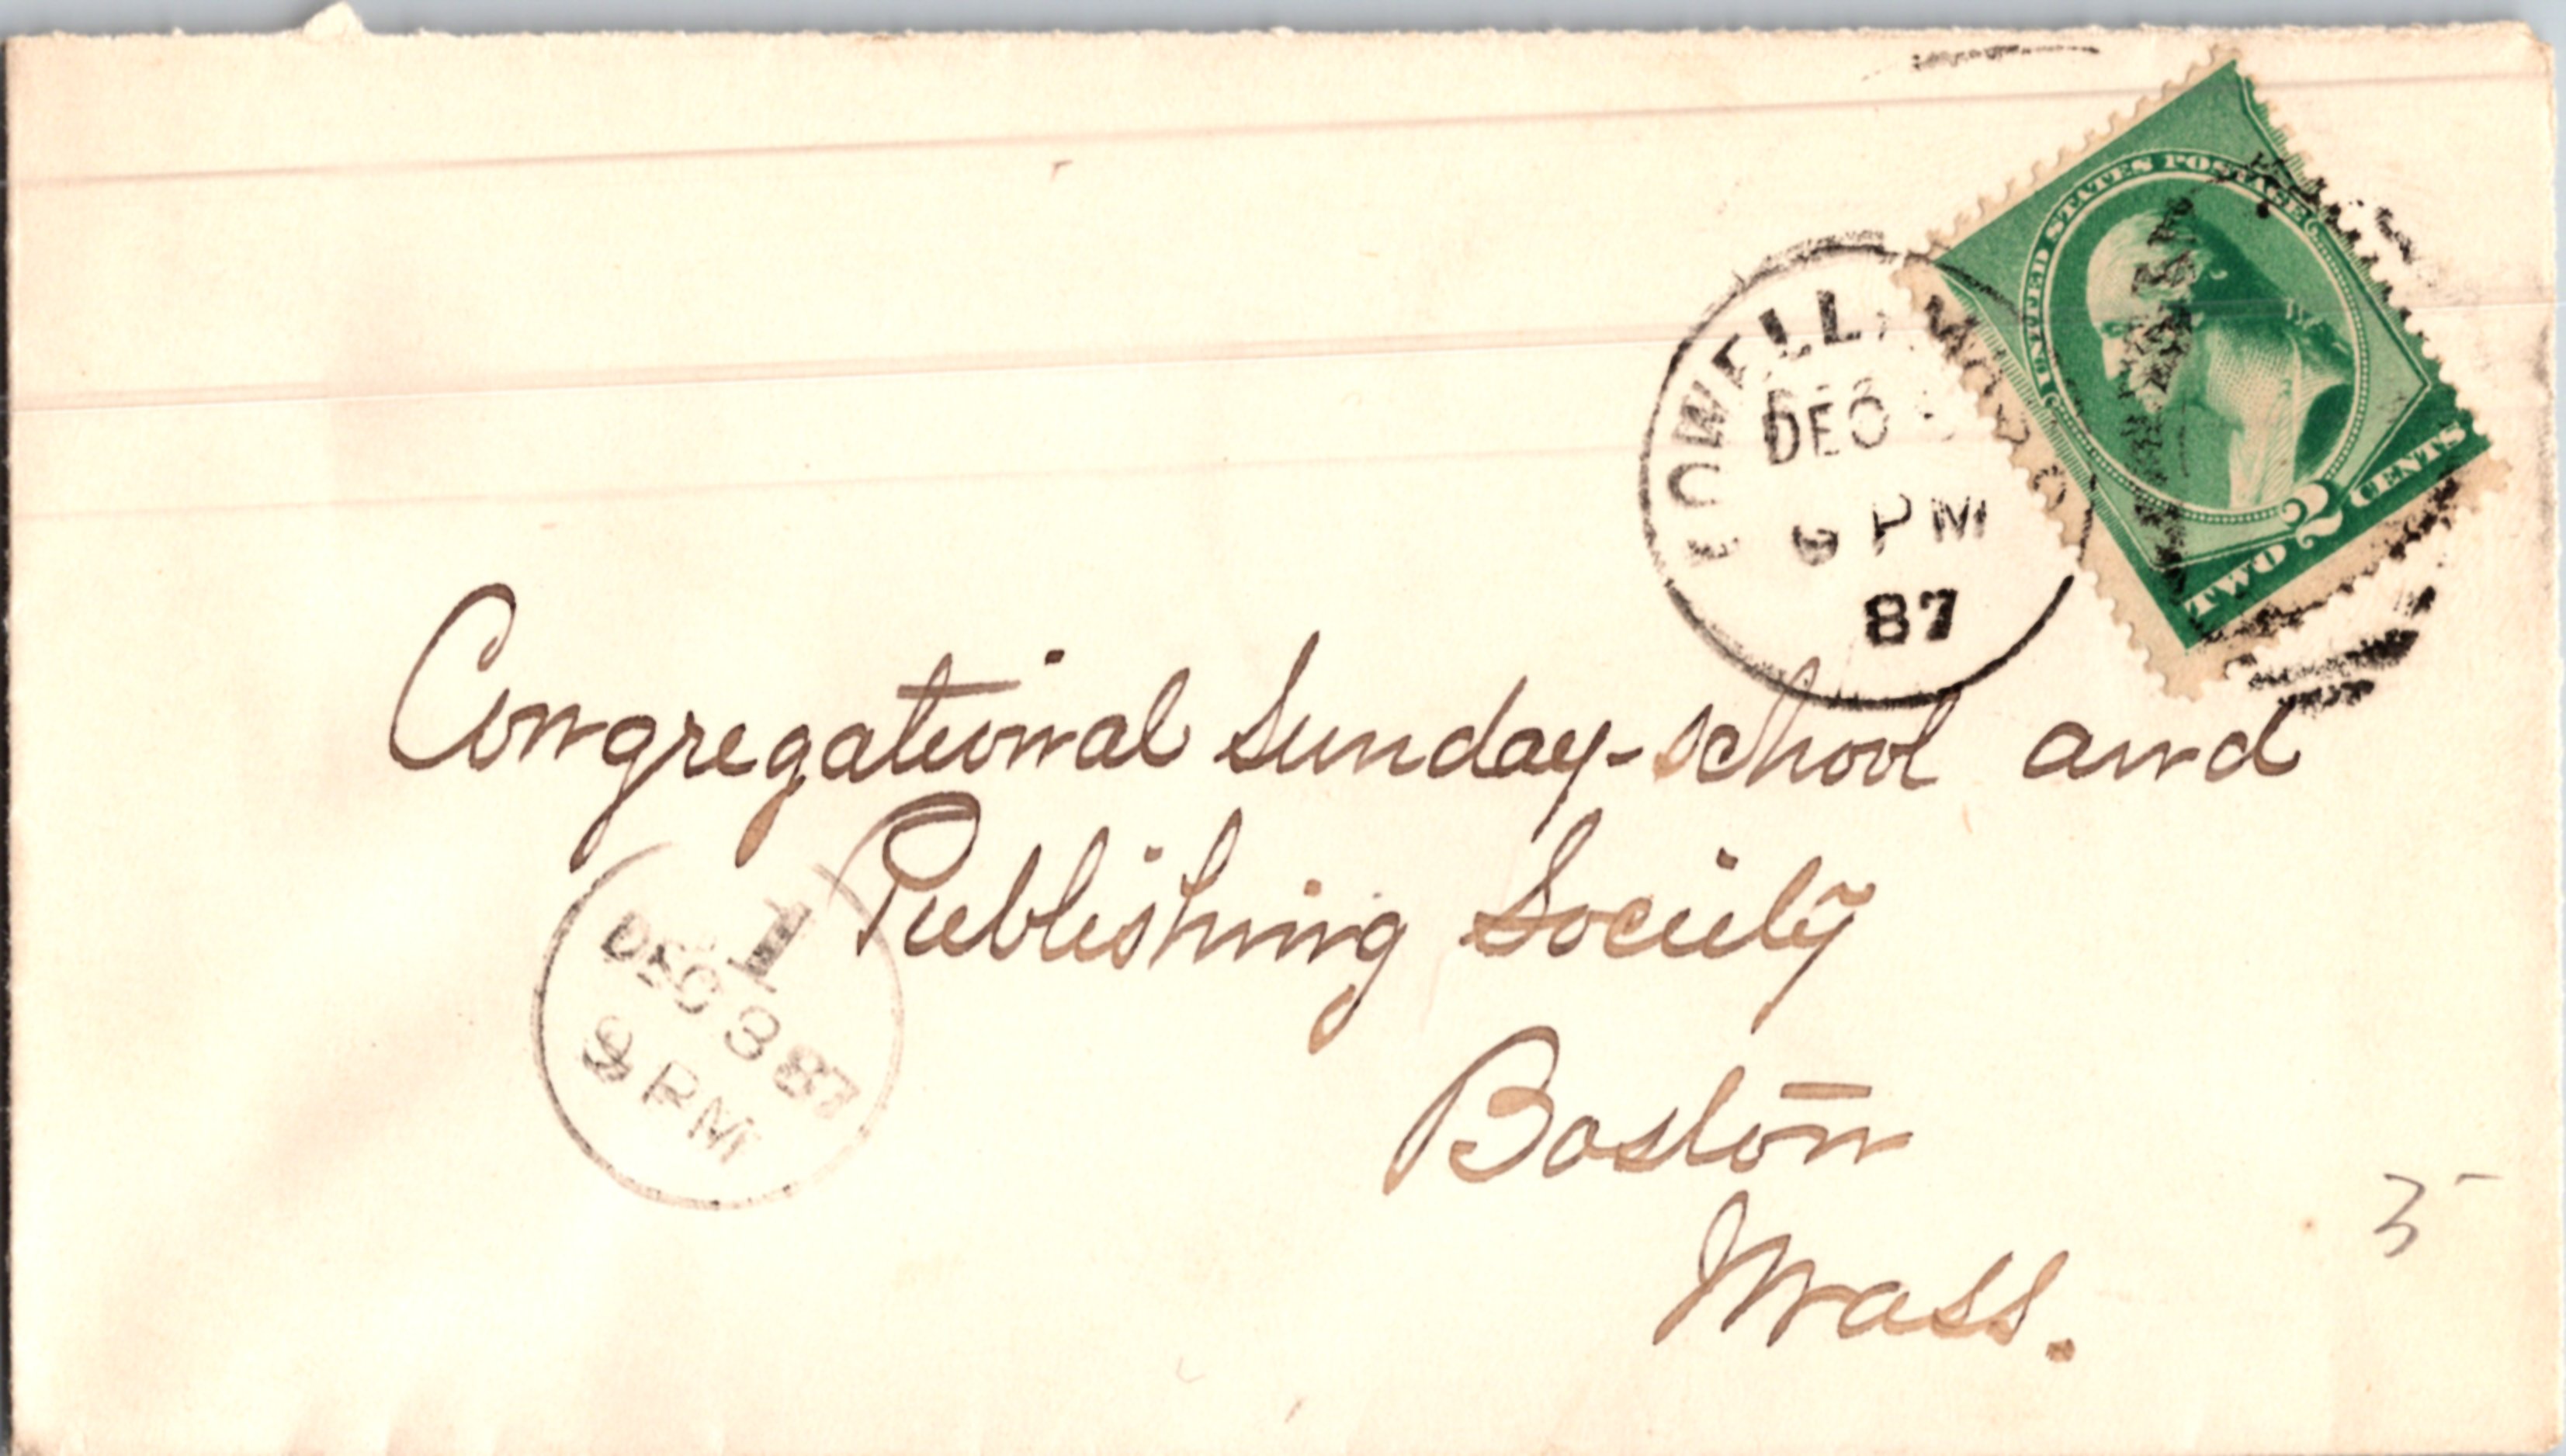 UNITED STATES POSTAGE
TWO 2 CENTS
LOWELL, MASS
DEC
6 PM
87
Congregational Sunday-school and
Publishing Society
Boston
Mass.
1
DEC 3 87
9 PM
5